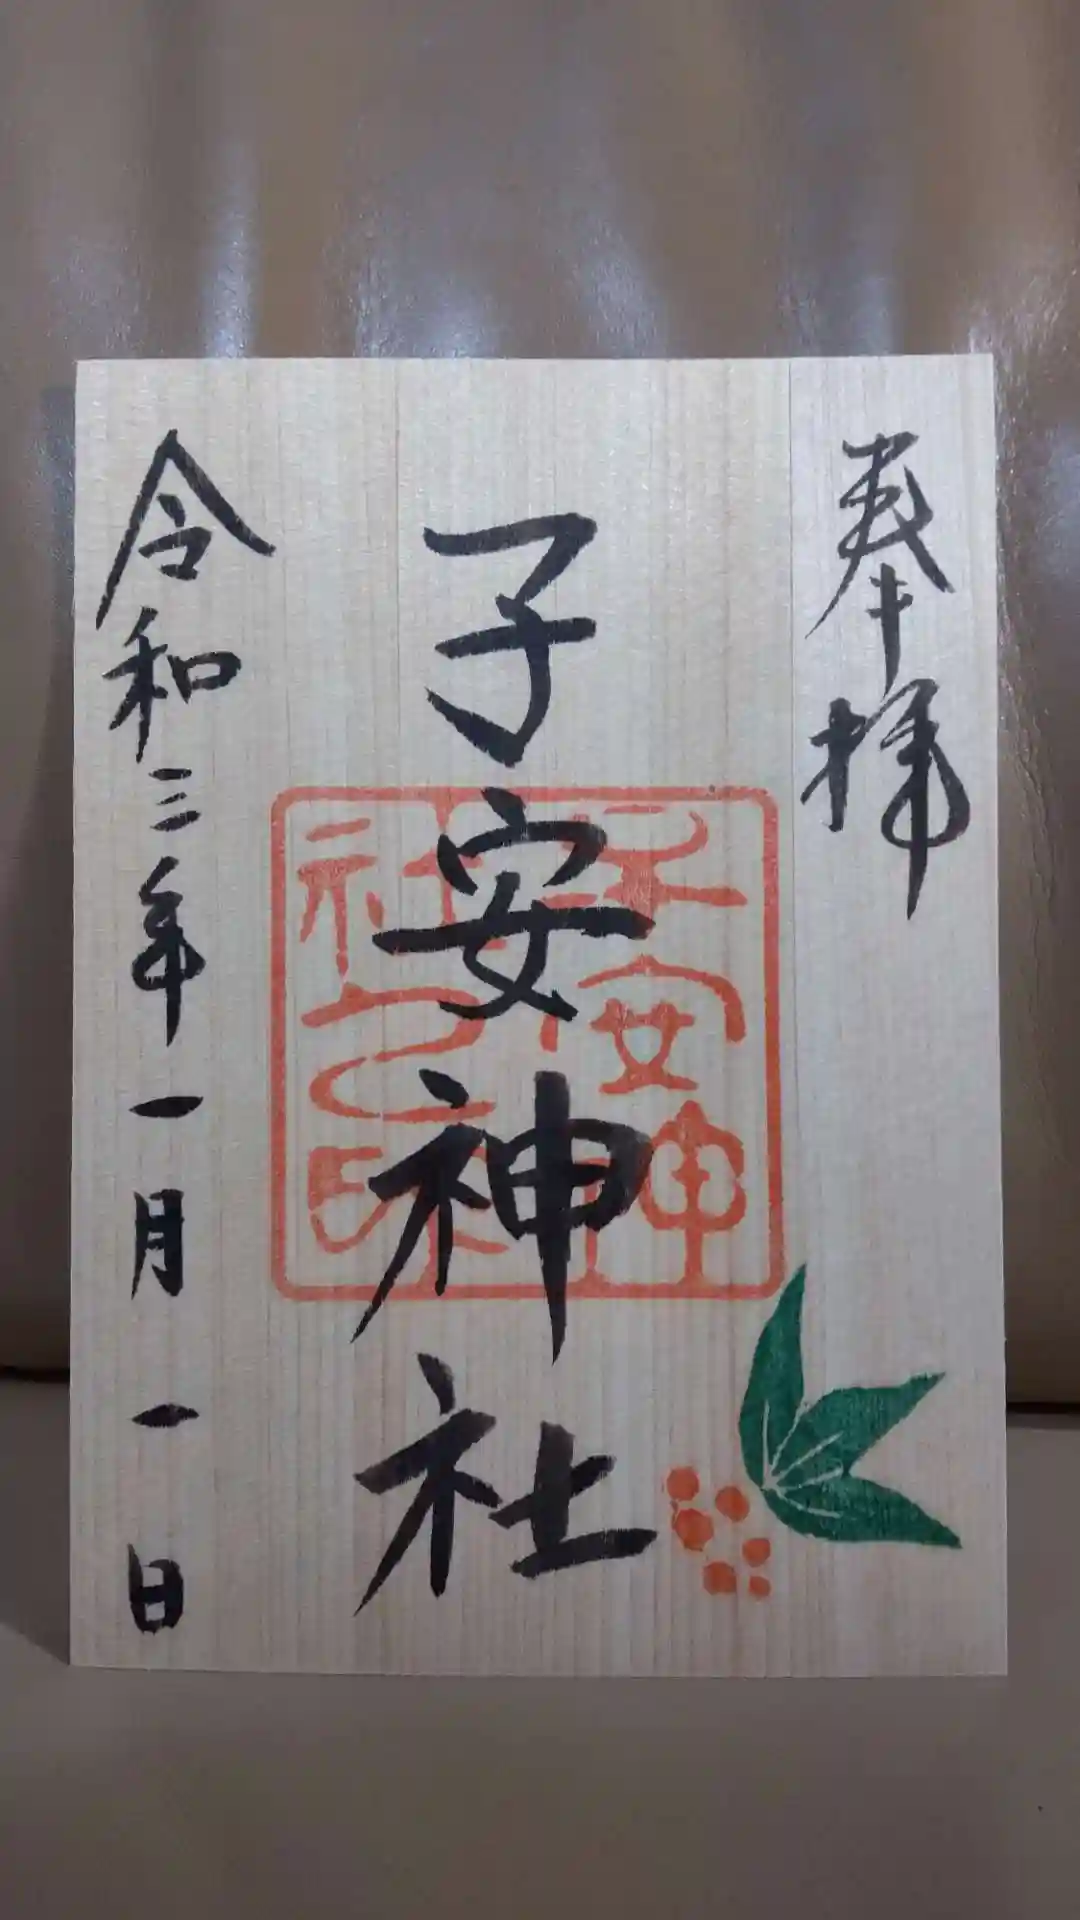 奉拝
子安神社
子安神
社之印
令和三年一月一日